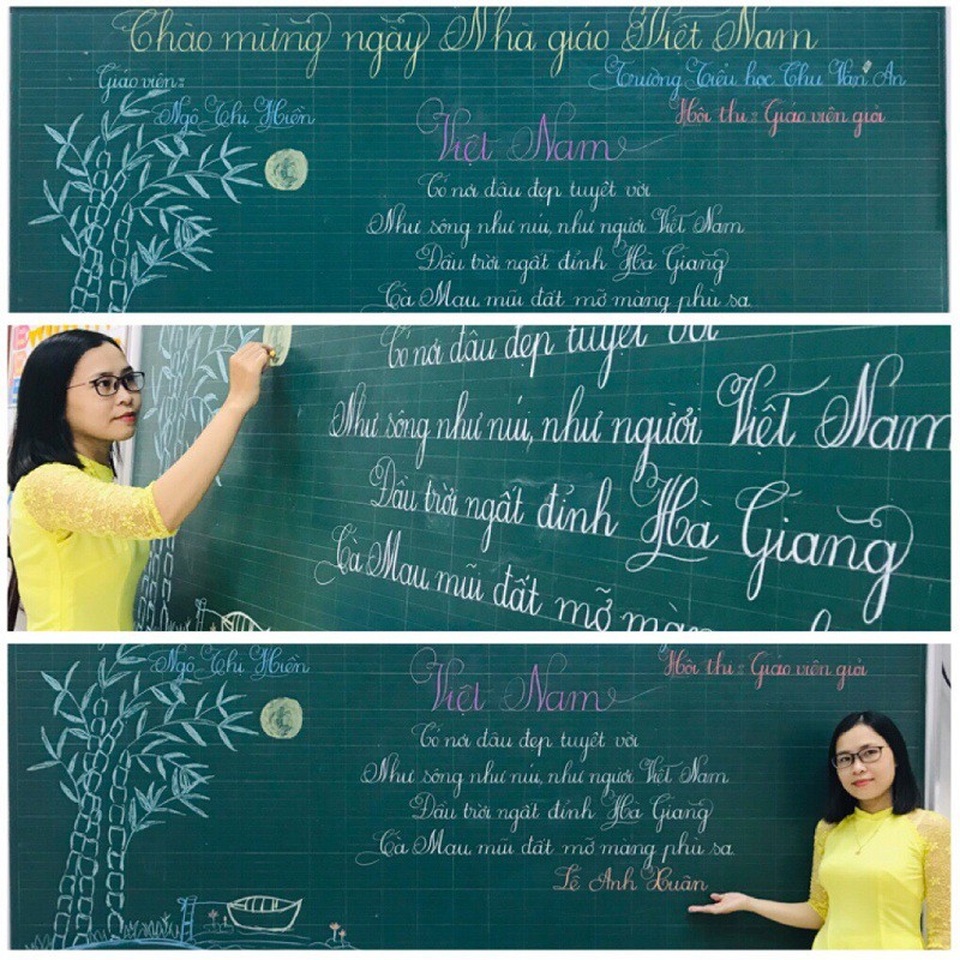 Chào mừng ngày Nhà giáo Việt Nam
Giáo viên:
Trường Tiểu học Chu Văn An
Ngô Thị Hiền
Hội thi: Giáo viên giỏi
Việt Nam
Có nơi đâu đẹp tuyệt vời
Như sông như núi, như người Việt Nam
Đầu trời ngất đỉnh Hà Giang
Cà Mau mũi đất mỡ màng phù sa.
Có nơi đâu đẹp tuyệt vời
Như sông như núi, như người Việt Nam
Đầu trời ngất đỉnh Hà Giang
Cà Mau mũi đất mỡ màn
Ngô Thị Hiền
Hội thi: Giáo viên giỏi
Việt Nam
Có nơi đâu đẹp tuyệt vời
Như sông như núi, như người Việt Nam
Đầu trời ngất đỉnh Hà Giang
Cà Mau mũi đất mỡ màng phù sa.
Lê Anh Xuân